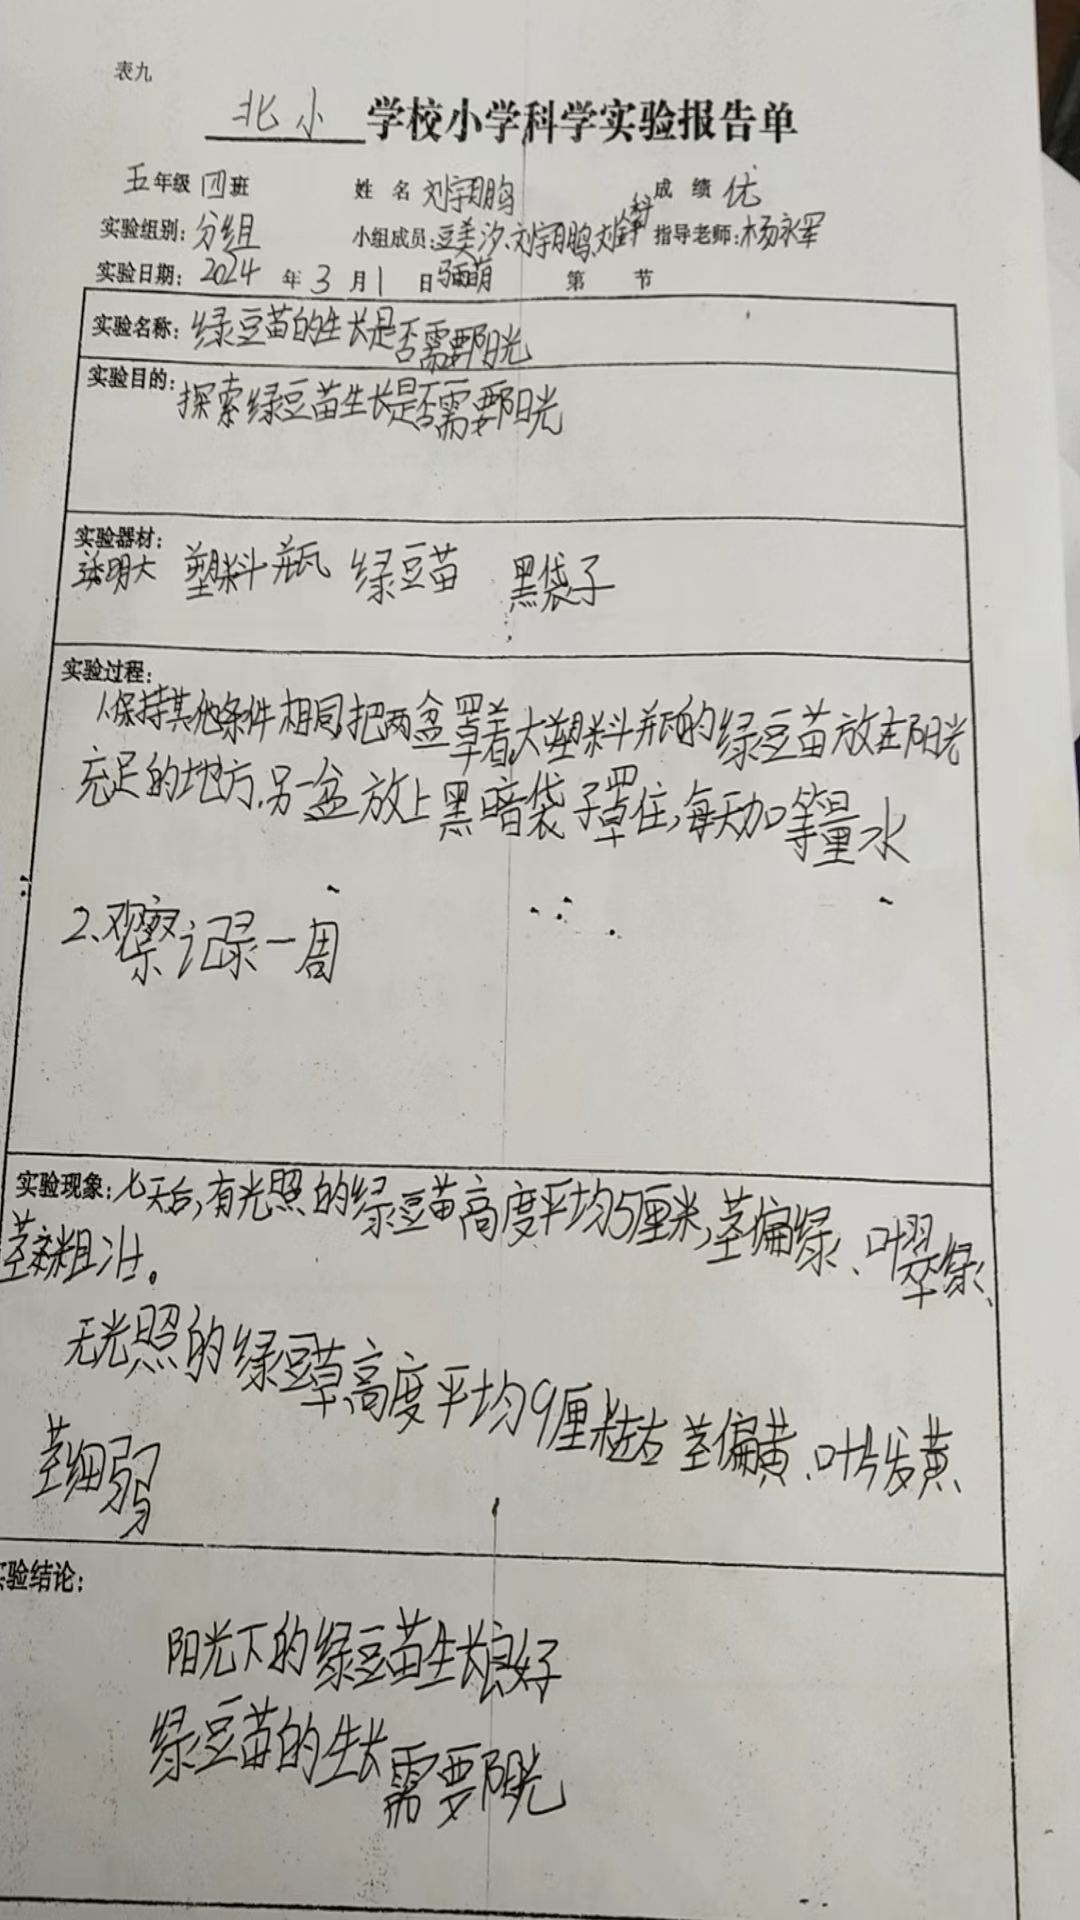 表九
北小 学校小学科学实验报告单
五年级 四班 姓 名 刘宇鹏 成 绩 优
实验组别: 分组 小组成员: 豆美汐、刘宇鹏、刘 指导老师: 杨永军
实验日期: 2024 年 3 月 1 日 第 节
实验名称: 绿豆苗的生长是否需要阳光
实验目的: 探索绿豆苗生长是否需要阳光
实验器材:
透明大 塑料瓶 绿豆苗 黑袋子
实验过程:
1、保持其他条件相同,把两盆罩着大塑料瓶的绿豆苗放在阳光
充足的地方,另一盆放上黑暗袋子罩住,每天加等量水
2、观察记录一周
实验现象: 七天后,有光照的绿豆苗高度平均5厘米,茎偏绿、叶翠绿、
茎粗壮。
无光照的绿豆草高度平均9厘米左右 茎偏黄、叶片发黄、
茎细弱
实验结论:
阳光下的绿豆苗生长良好
绿豆苗的生长需要阳光